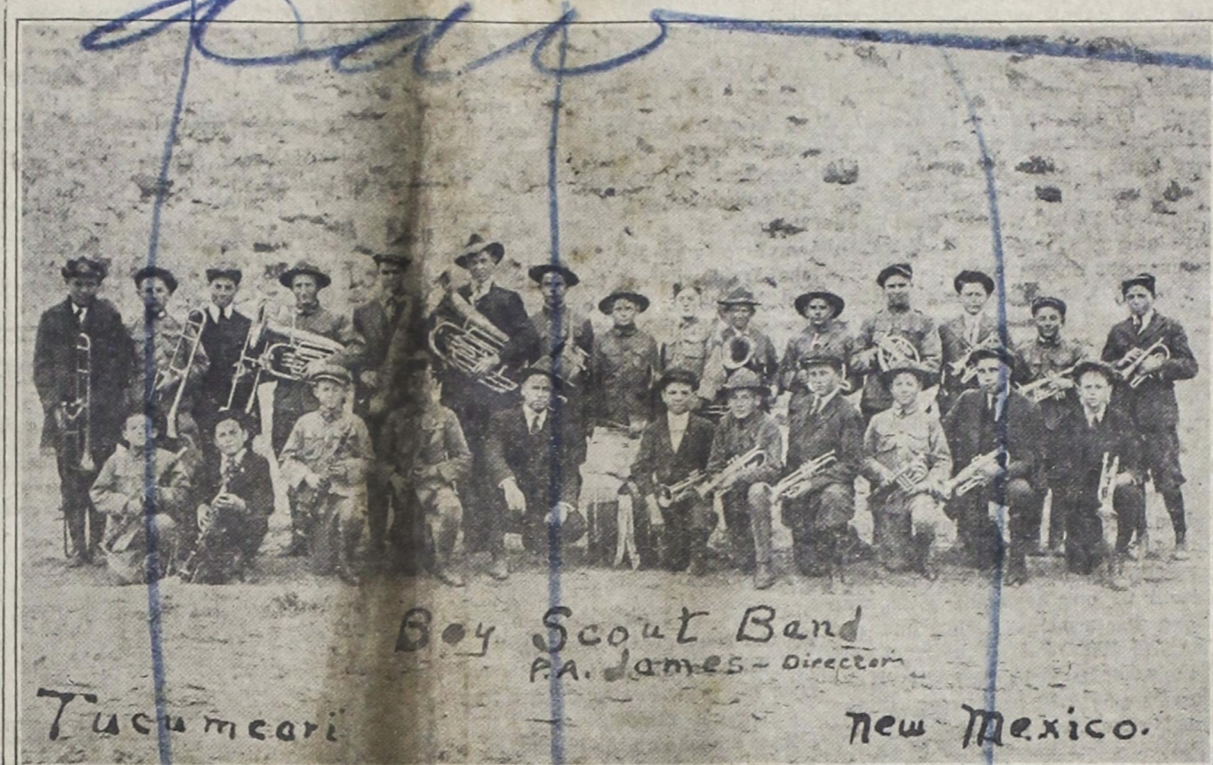 Boy Scout Band
P.A. James - Director
Tucumcari New Mexico.